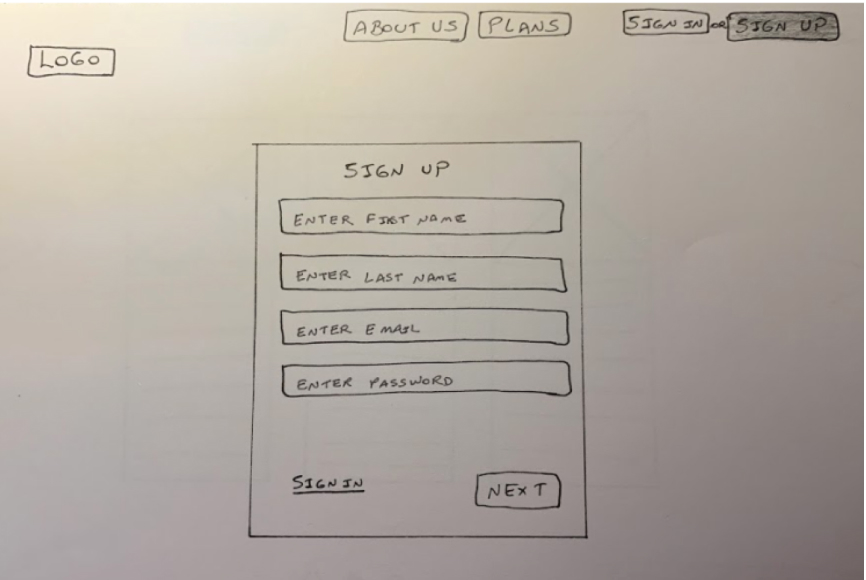 ABOUT US PLANS SIGN IN or SIGN UP
LOGO
SIGN UP
ENTER FIRST NAME
ENTER LAST NAME
ENTER EMAIL
ENTER PASSWORD
SIGN IN NEXT